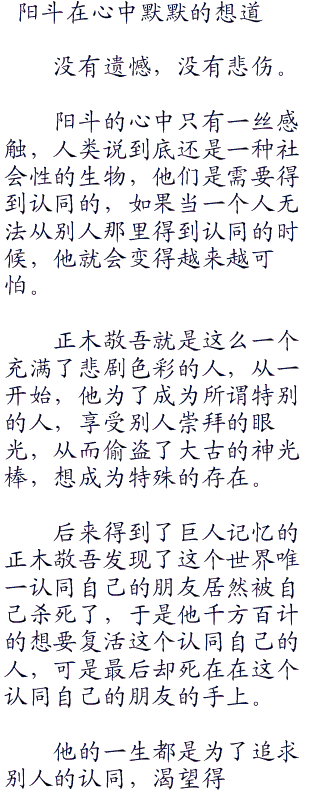 阳斗在心中默默的想道
没有遗憾，没有悲伤。
阳斗的心中只有一丝感
触，人类说到底还是一种社
会性的生物，他们是需要得
到认同的，如果当一个人无
法从别人那里得到认同的时
候，他就会变得越来越可
怕。
正木敬吾就是这么一个
充满了悲剧色彩的人，从一
开始，他为了成为所谓特别
的人，享受别人崇拜的眼
光，从而偷盗了大古的神光
棒，想成为特殊的存在。
后来得到了巨人记忆的
正木敬吾发现了这个世界唯
一认同自己的朋友居然被自
己杀死了，于是他千方百计
的想要复活这个认同自己的
人，可是最后却死在在这个
认同自己的朋友的手上。
他的一生都是为了追求
别人的认同，渴望得